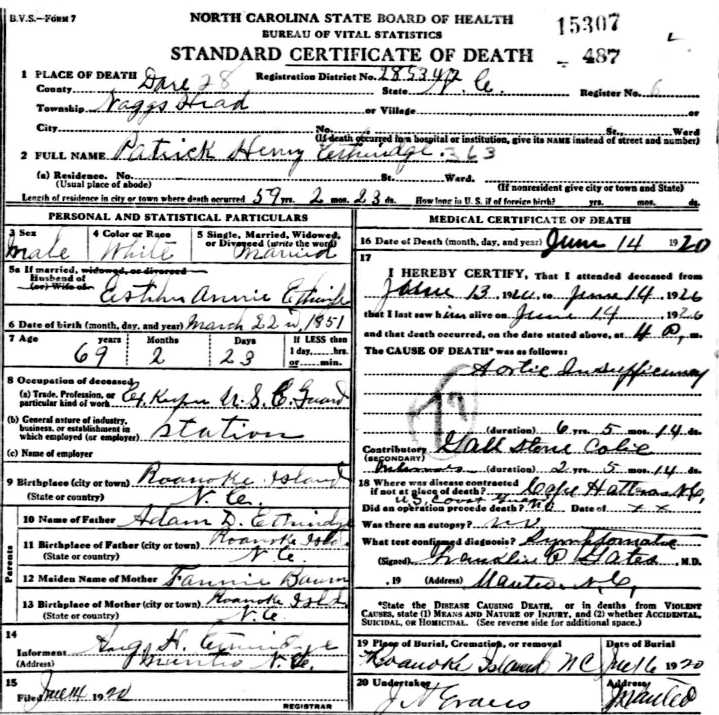 B.V.S.—FORM 7
NORTH CAROLINA STATE BOARD OF HEALTH
BUREAU OF VITAL STATISTICS
STANDARD CERTIFICATE OF DEATH
15307
487
1 PLACE OF DEATH
County Dare 28 Registration District No. State N. C. Register No. 6
Township Naggs Head or Village or
City No. St., Ward
(If death occurred in a hospital or institution, give its NAME instead of street and number)
2 FULL NAME Patrick Henry Etheridge. 363
(a) Residence. No. St. Ward.
(Usual place of abode) (If nonresident give city or town and State)
Length of residence in city or town where death occurred 59 yrs. 2 mos. 23 ds. How long in U. S. if of foreign birth? yrs. mos. ds.
PERSONAL AND STATISTICAL PARTICULARS
3 Sex 4 Color or Race 5 Single, Married, Widowed, or Divorced (write the word)
Male White Married
5a If married, widowed, or divorced
Husband of
(or) Wife of Annie Etheridge
6 Date of birth (month, day, and year) March 22 1851
7 Age years Months Days If LESS than
69 2 23 1 day,....hrs.
or....min.
8 Occupation of deceased
(a) Trade, Profession, or particular kind of work Ex. Keeper U. S. C. Guard
(b) General nature of industry, business, or establishment in which employed (or employer) Station
(c) Name of employer
9 Birthplace (city or town) Roanoke Island
(State or country) N. C.
Parents
10 Name of Father Adam D. Etheridge
11 Birthplace of Father (city or town) Roanoke Isld
(State or country) N. C
12 Maiden Name of Mother Fannie Baum
13 Birthplace of Mother (city or town) Roanoke Isld
(State or country) N. C
14
Informant H. Etheridge
(Address) Manteo N. C.
15
Filed June 14 1920
REGISTRAR
MEDICAL CERTIFICATE OF DEATH
16 Date of Death (month, day, and year) June 14 1920
17
I HEREBY CERTIFY, That I attended deceased from
June 13 to June 14, 1920
that I last saw him alive on June 14 1920
and that death occurred, on the date stated above, at 4 P. m.
The CAUSE OF DEATH* was as follows:
Aortic Insufficiency
(duration) 6 yrs. 5 mos. 14 ds.
Contributory Gall Stone Colic
(SECONDARY)
(duration) 2 yrs. 5 mos. 14 ds.
18 Where was disease contracted
if not at place of death? Cape Hatteras N.C.
U.S. Coast Guard
Did an operation precede death? No Date of x x
Was there an autopsy? no
What test confirmed diagnosis? Symptomatic
(Signed) Franklin P. Gates, M.D.
, 19 (Address) Manteo, N.C,
*State the DISEASE CAUSING DEATH, or in deaths from VIOLENT
CAUSES, state (1) MEANS AND NATURE OF INJURY, and (2) whether ACCIDENTAL,
SUICIDAL, OR HOMICIDAL. (See reverse side for additional space.)
19 Place of Burial, Cremation, or removal Date of Burial
Roanoke Island NC June 16 1920
20 Undertaker Address
J N Evans Manteo